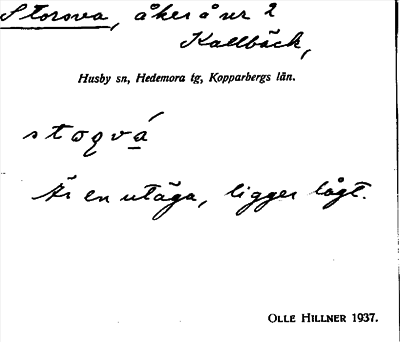 Storova, åker å nr 2
Kallbäck,
Husby sn, Hedemora tg, Kopparbergs län.
Är en utäga, ligger lågt.
OLLE HILLNER 1937.